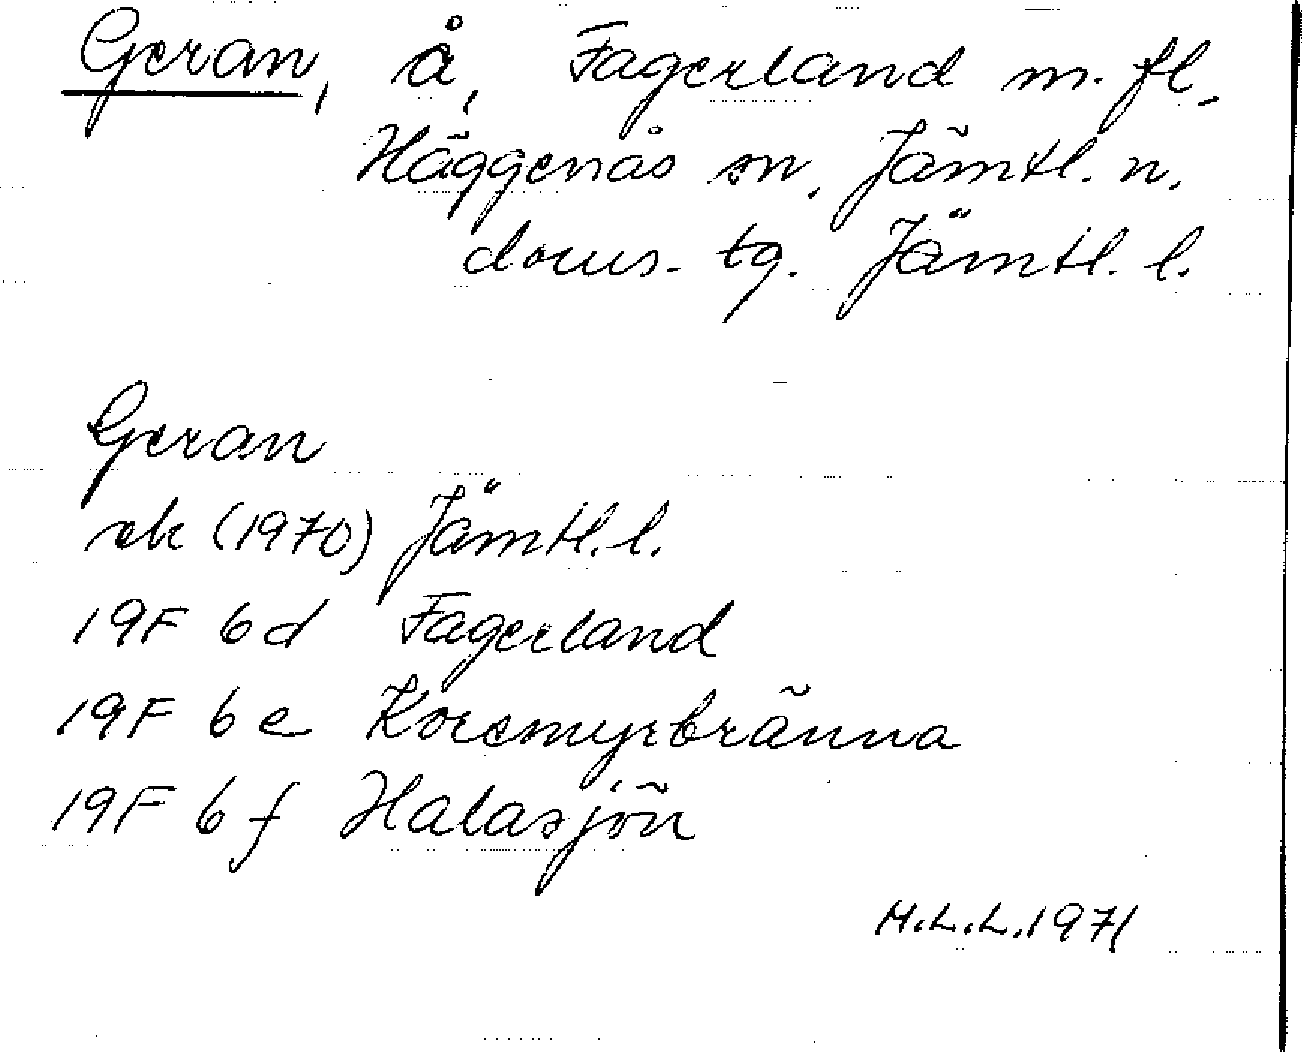 Geran, å, Fagerland m. fl.
Häggenås sn. Jämtl. n.
doms. tg. Jämtl. l.
Geran
ek (1970) Jämtl. l.
19F 6d Fagerland
19F 6e Korsmyrbränna
19F 6f Halasjön
H.L.L. 1971